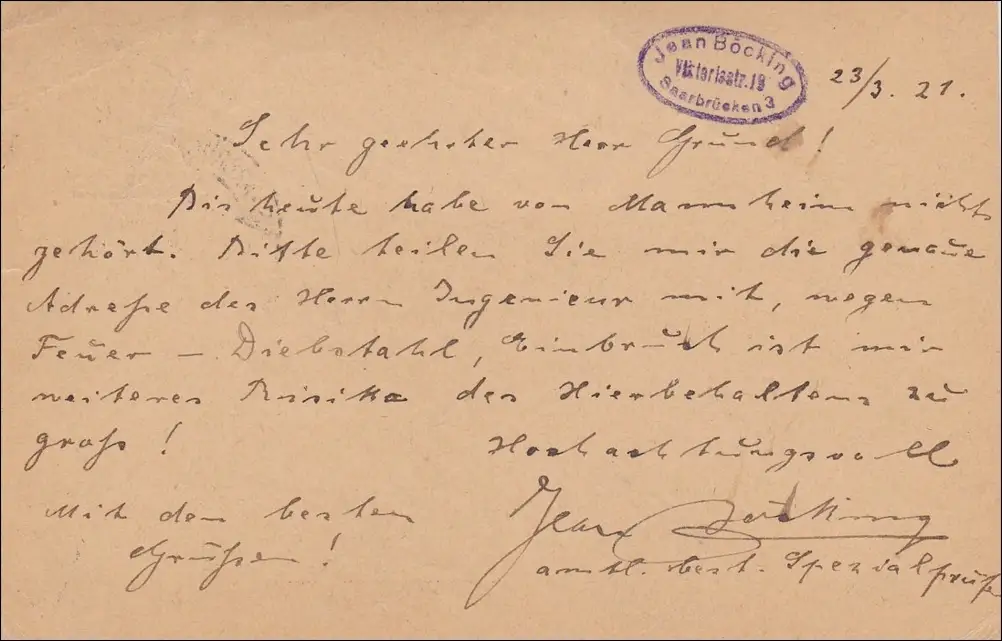 Jean Böcking
Viktoriastr. 19
Saarbrücken 3
23/3. 21.
Sehr geehrter Herr Grund!
Bis heute habe von Mannheim nichts
gehört. Bitte teilen Sie mir die genaue
Adreße des Herrn Ingenieur mit, wegen
Feuer – Diebstahl, Einbruch ist mir
weiteres Risiko des Hierbehaltens zu
groß!
Hochachtungsvoll
Mit den besten
Grüßen!
Jean Böcking
amtl. best. Spezialprüfer